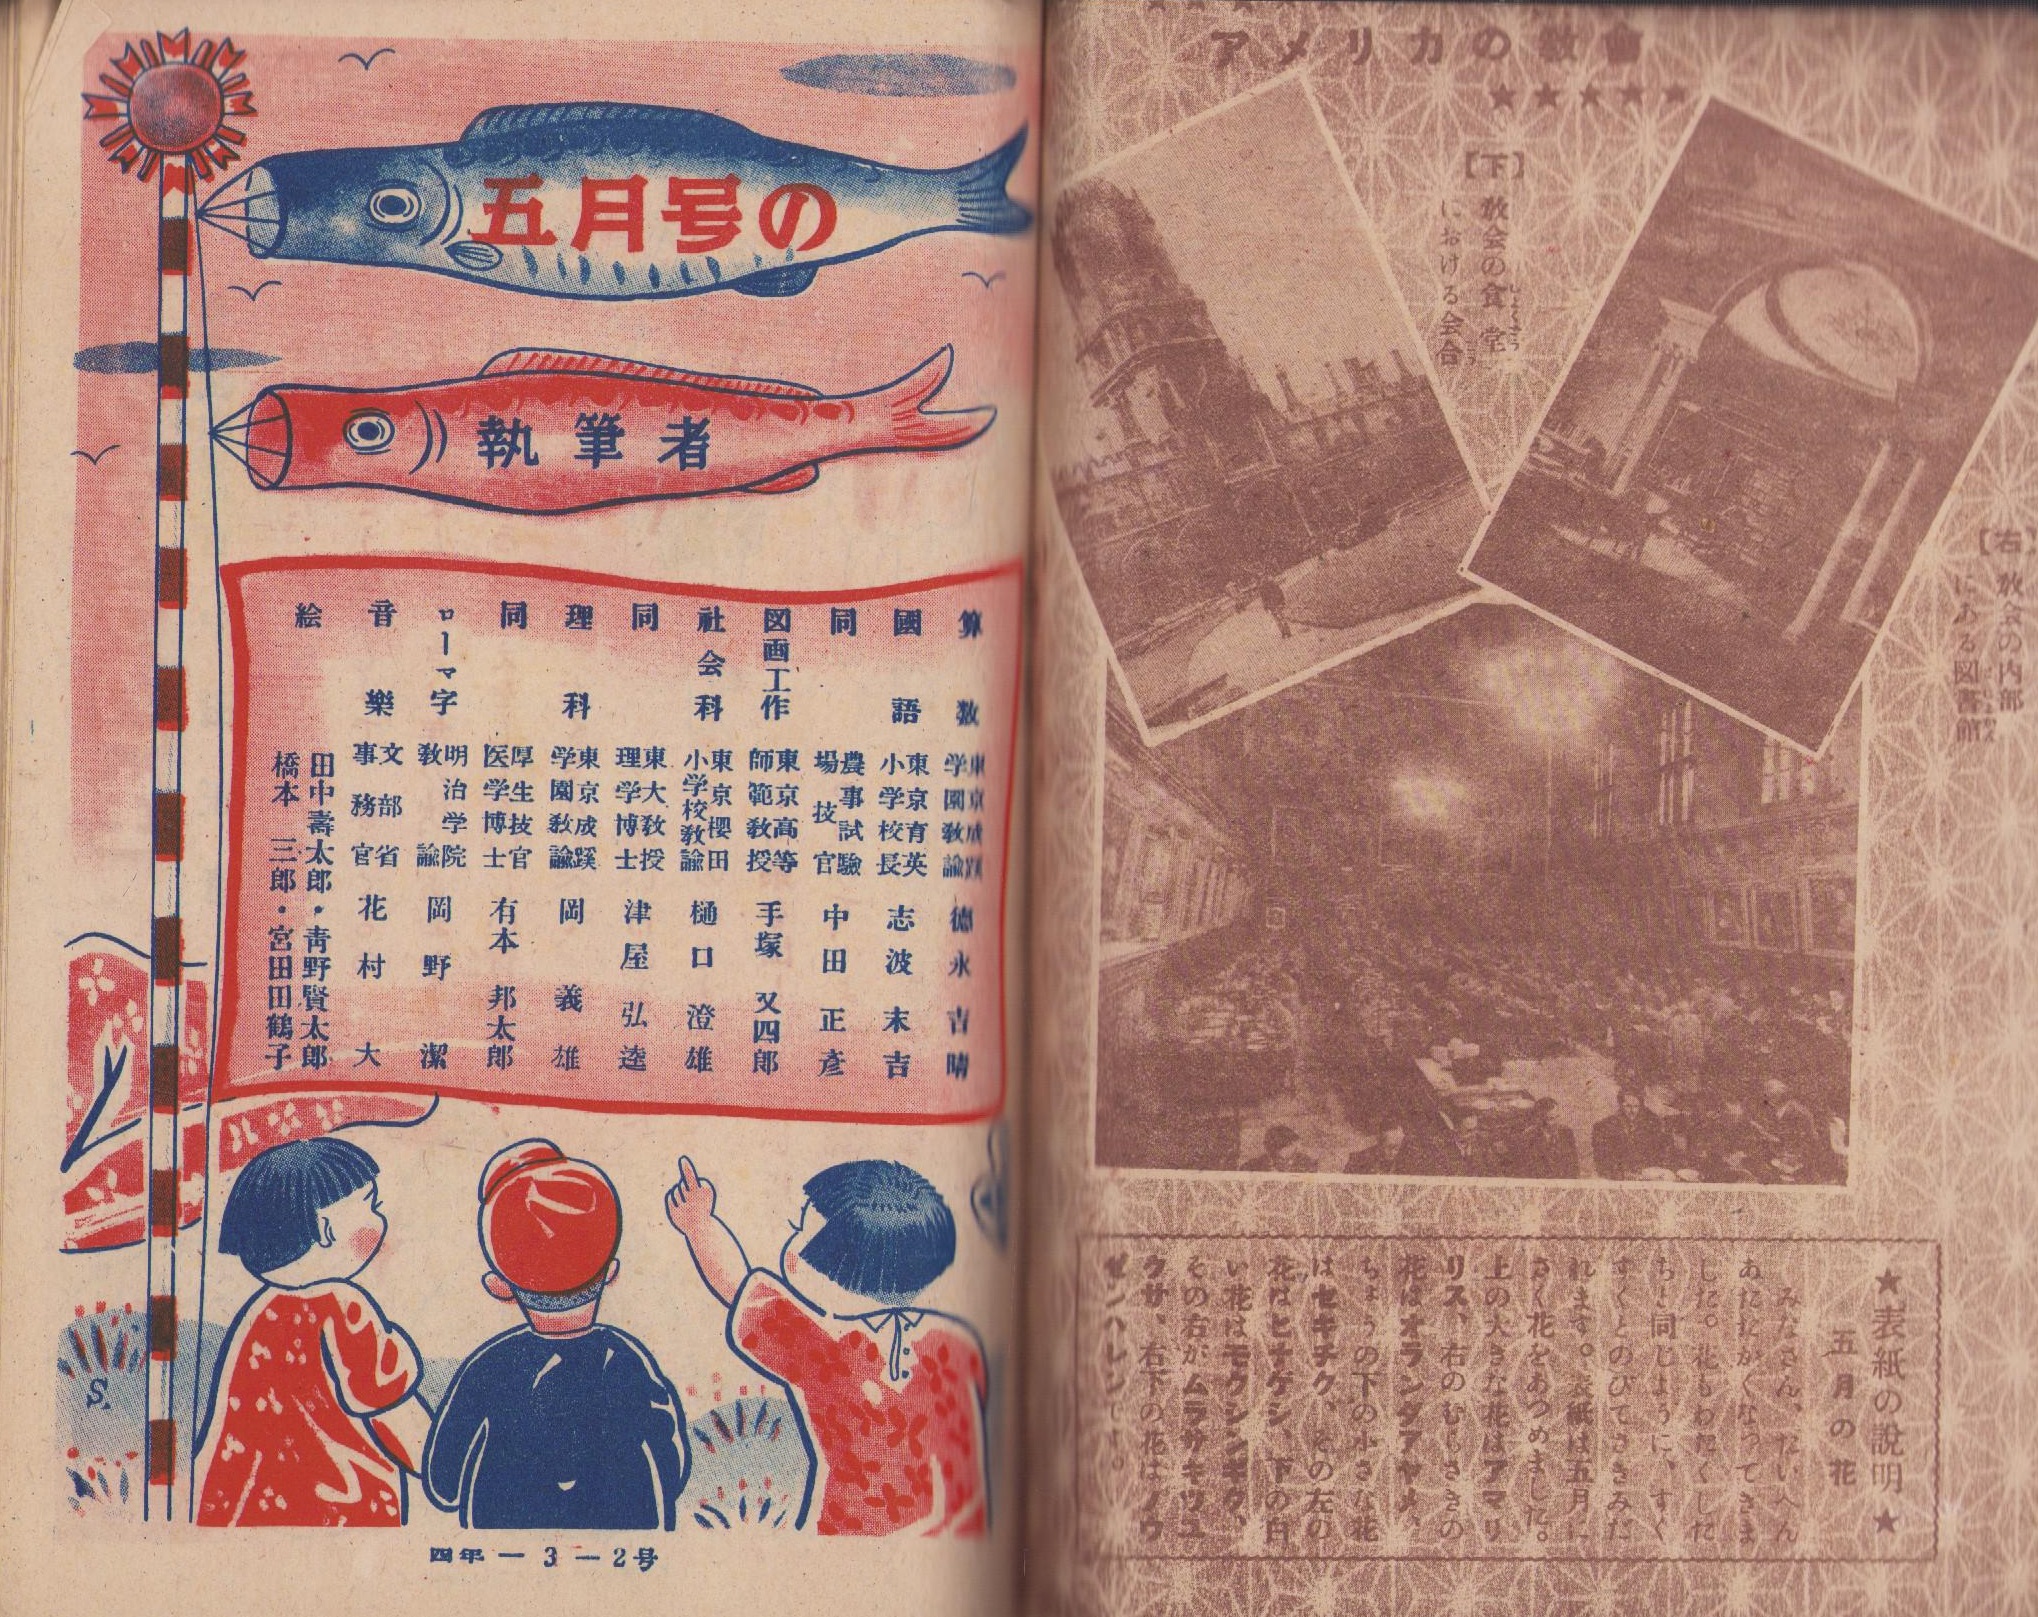 アメリカの教會
【下】教会の食堂
における会合
【右】教会の内部
にある図書館
★表紙の説明★
五月の花
みなさん、たいへん
あたたかくなってきま
した。花もわたくした
ちと同じように、すく
すくとのびてさきみだ
れます。表紙は五月に
さく花をあつめました。
上の大きな花はアマリ
リス、右のむらさきの
花はオランダアヤメ、
ちょうの下の小さな花
はセキチク、その左の
花はヒナゲシ、下の白
い花はモクシュンギク、
その右がムラサキツユ
クサ、右下の花はノウ
ゼンハレンです。
五月号の
執筆者
算数 東京成蹊学園教諭 徳永吉晴
國語 東京育英小学校長 志波末吉
同 農事試驗場技官 中田正彦
図画工作 東京高等師範教授 手塚又四郎
社会科 東京櫻田小学校教諭 樋口澄雄
同 東大教授理学博士 津屋弘逵
理科 東京成蹊学園教諭 岡義雄
同 厚生技官医学博士 有本邦太郎
ローマ字 明治学院教諭 岡野潔
音樂 文部省事務官 花村大
絵 田中壽太郎・靑野賢太郎
橋本三郎・宮田田鶴子
S.
四年－3－2号